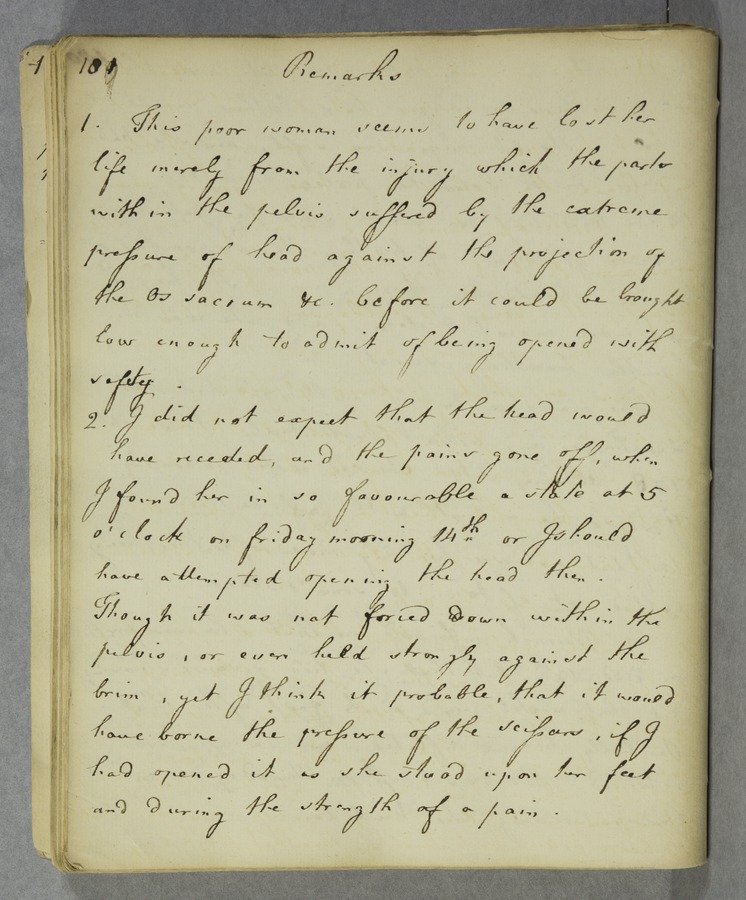 101 Remarks
1. This poor woman seems to have lost her
life merely from the injury which the parts
within the pelvis suffered by the extreme
pressure of head against the projection of
the Os sacrum &c. before it could be brought
low enough to admit of being opened with
safety.
2. I did not expect that the head would
have receeded, and the pains gone off, when
I found her in so favourable a state at 5
o'clock on friday morning 14th or I should
have attempted opening the head then.
Though it was not forced down within the
pelvis, or even held strongly against the
brim, yet I think it probable, that it would
have borne the pressure of the scissars, if I
had opened it as she stood upon her feet
and during the strength of a pain.